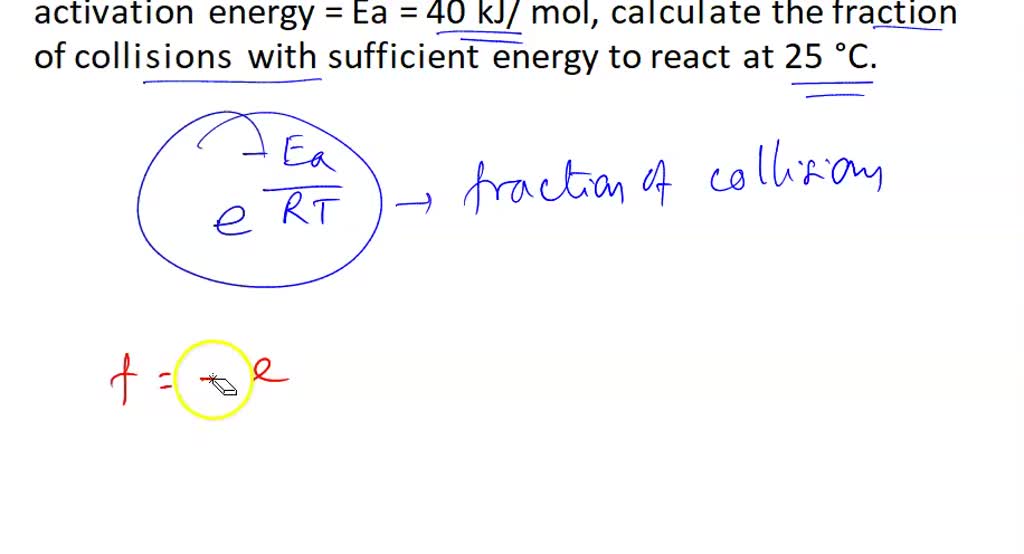 activation energy = Ea = 40 kJ/ mol, calculate the fraction
of collisions with sufficient energy to react at 25 °C.
e -Ea/RT → fraction of collisions
f = - e